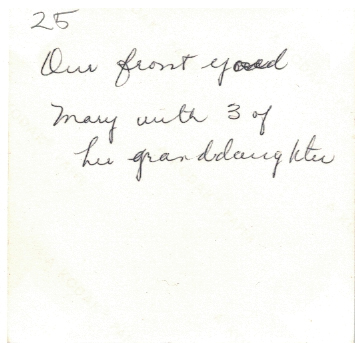 25
Our front yard
Mary with 3 of
her granddaughter